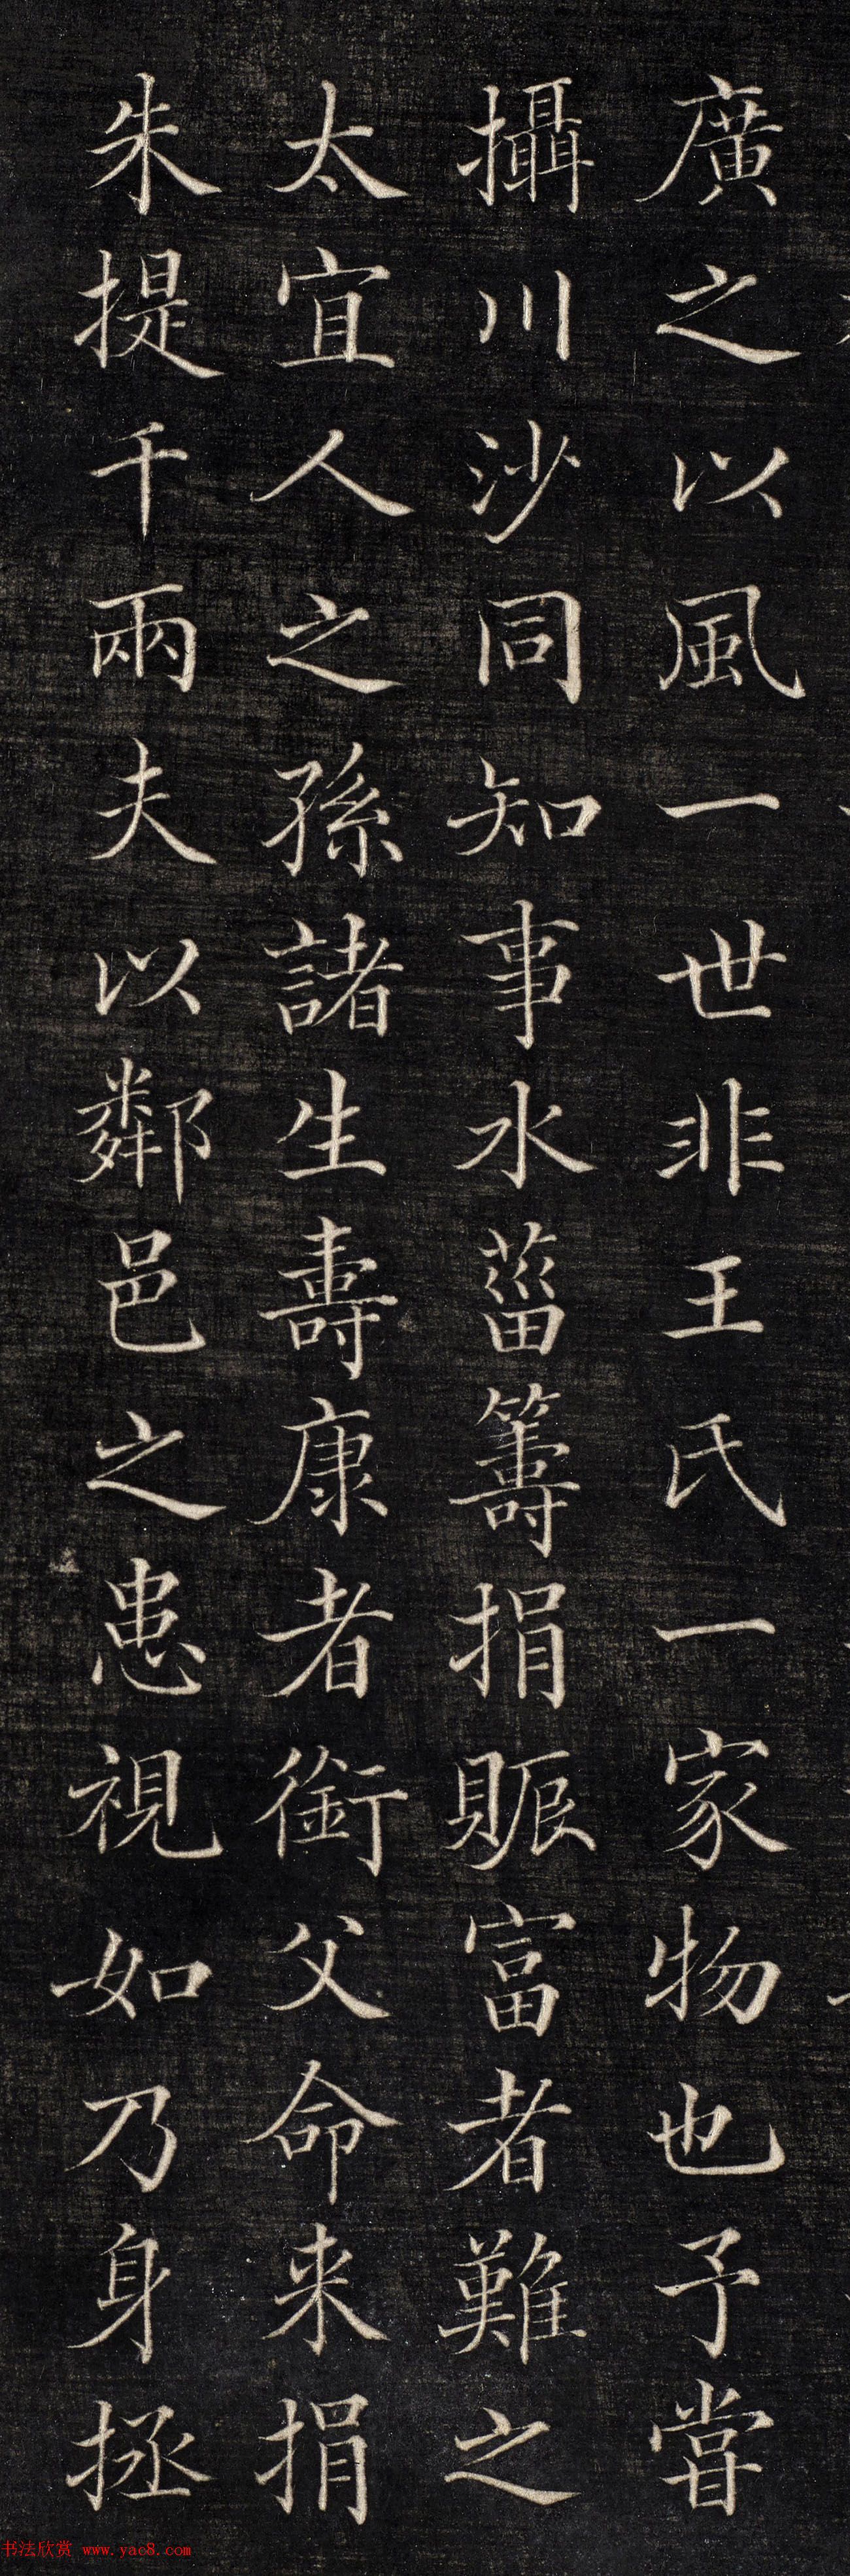 廣之以風一世非王氏一家物也予嘗
攝川沙同知事水菑籌捐賑富者難之
太宜人之孫諸生壽康者銜父命来捐
朱提千兩夫以鄰邑之患視如乃身拯
书法欣赏 www.yac8.com